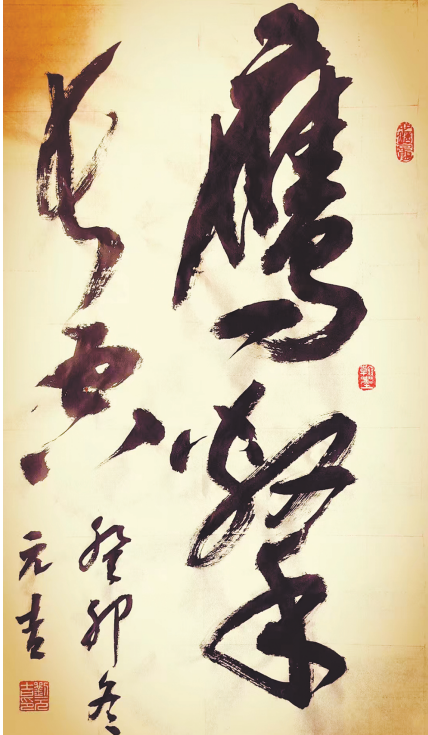 鷹擊
長空
癸卯冬
元吉